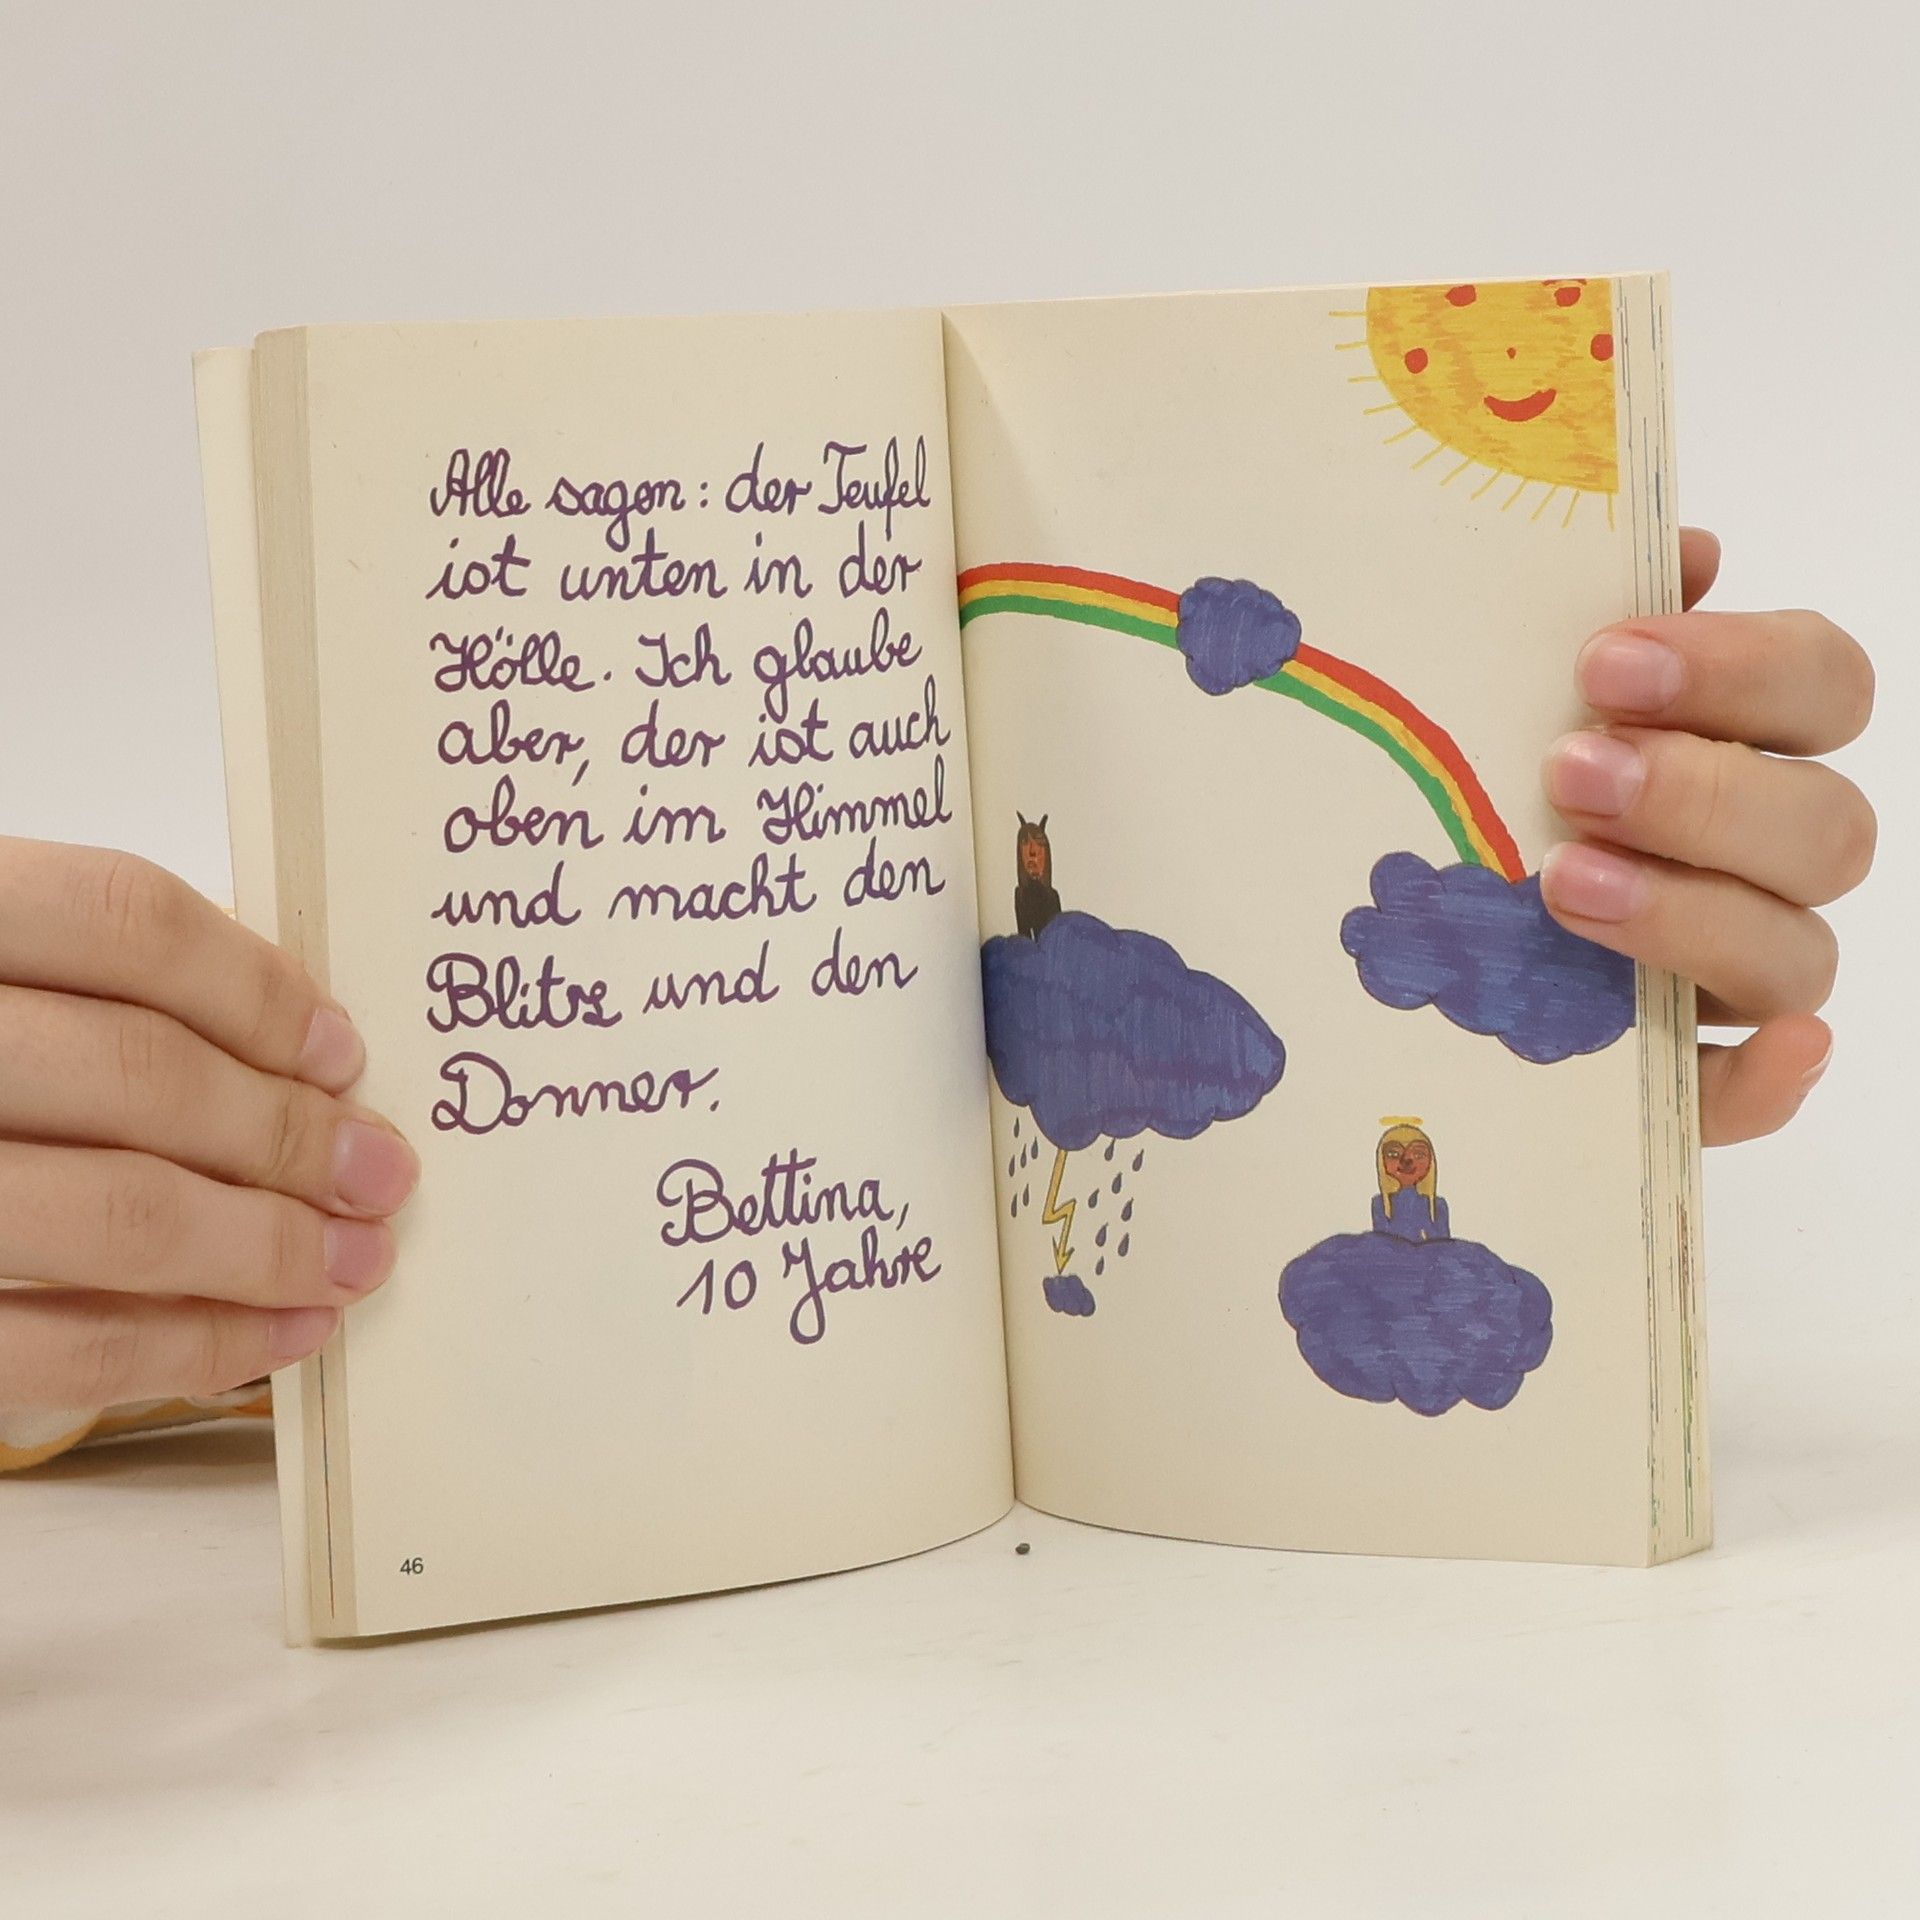 Alle sagen: der Teufel
ist unten in der
Hölle. Ich glaube
aber, der ist auch
oben im Himmel
und macht den
Blitz und den
Donner.
Bettina,
10 Jahre
46